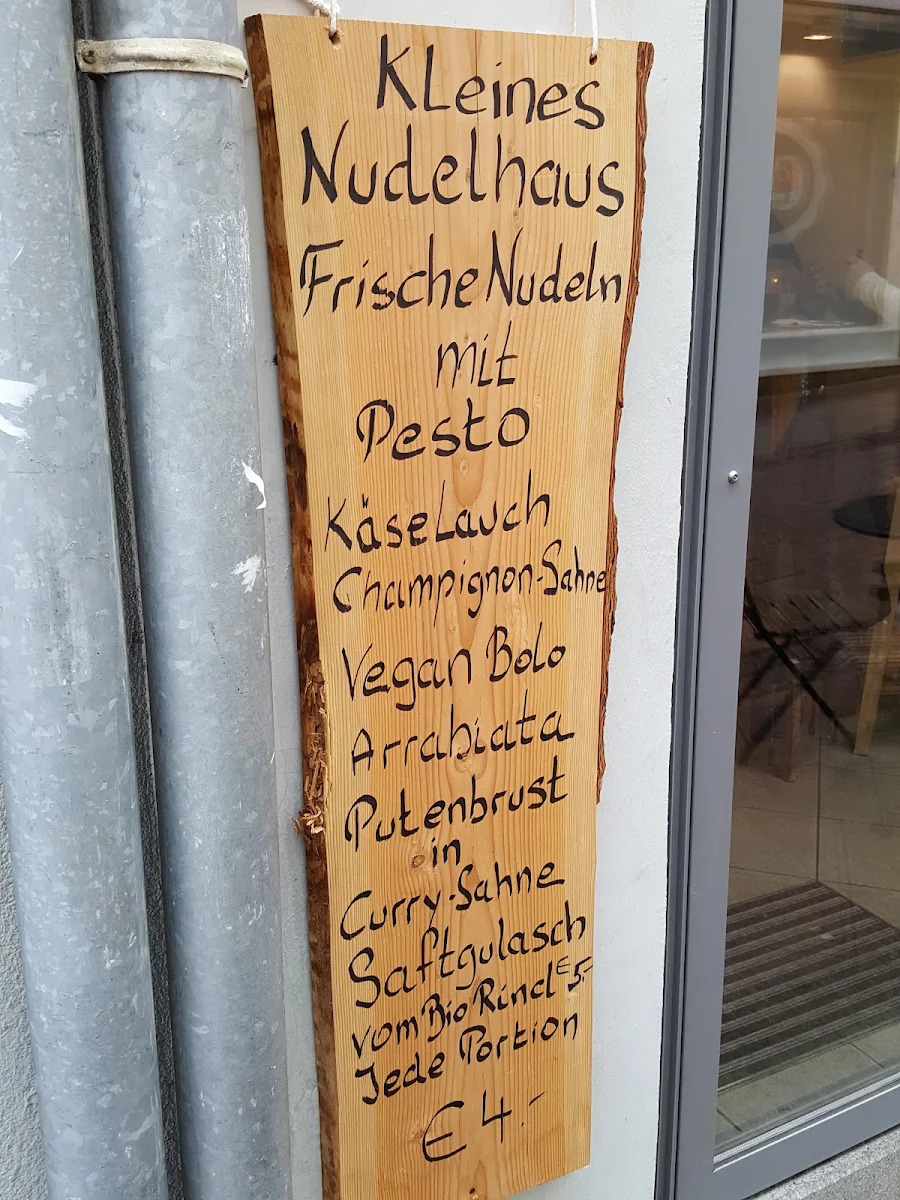 Kleines
Nudelhaus
Frische Nudeln
mit
Pesto
Käse Lauch
Champignon-Sahne
Vegan Bolo
Arrabiata
Putenbrust
in
Curry-Sahne
Saftgulasch
vom Bio Rind € 5.-
Jede Portion
€ 4.-